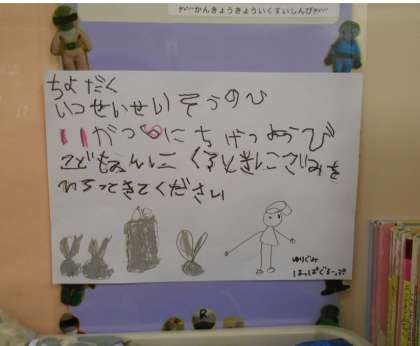 かんきょうきょういくすいしんび
ちよだく
いっせいせいそうのひ
11がつ6にちげつようび
こどもえんにくるとき
ひろってきてください
ゆりぐみ
はっぱぐるーぷ
R